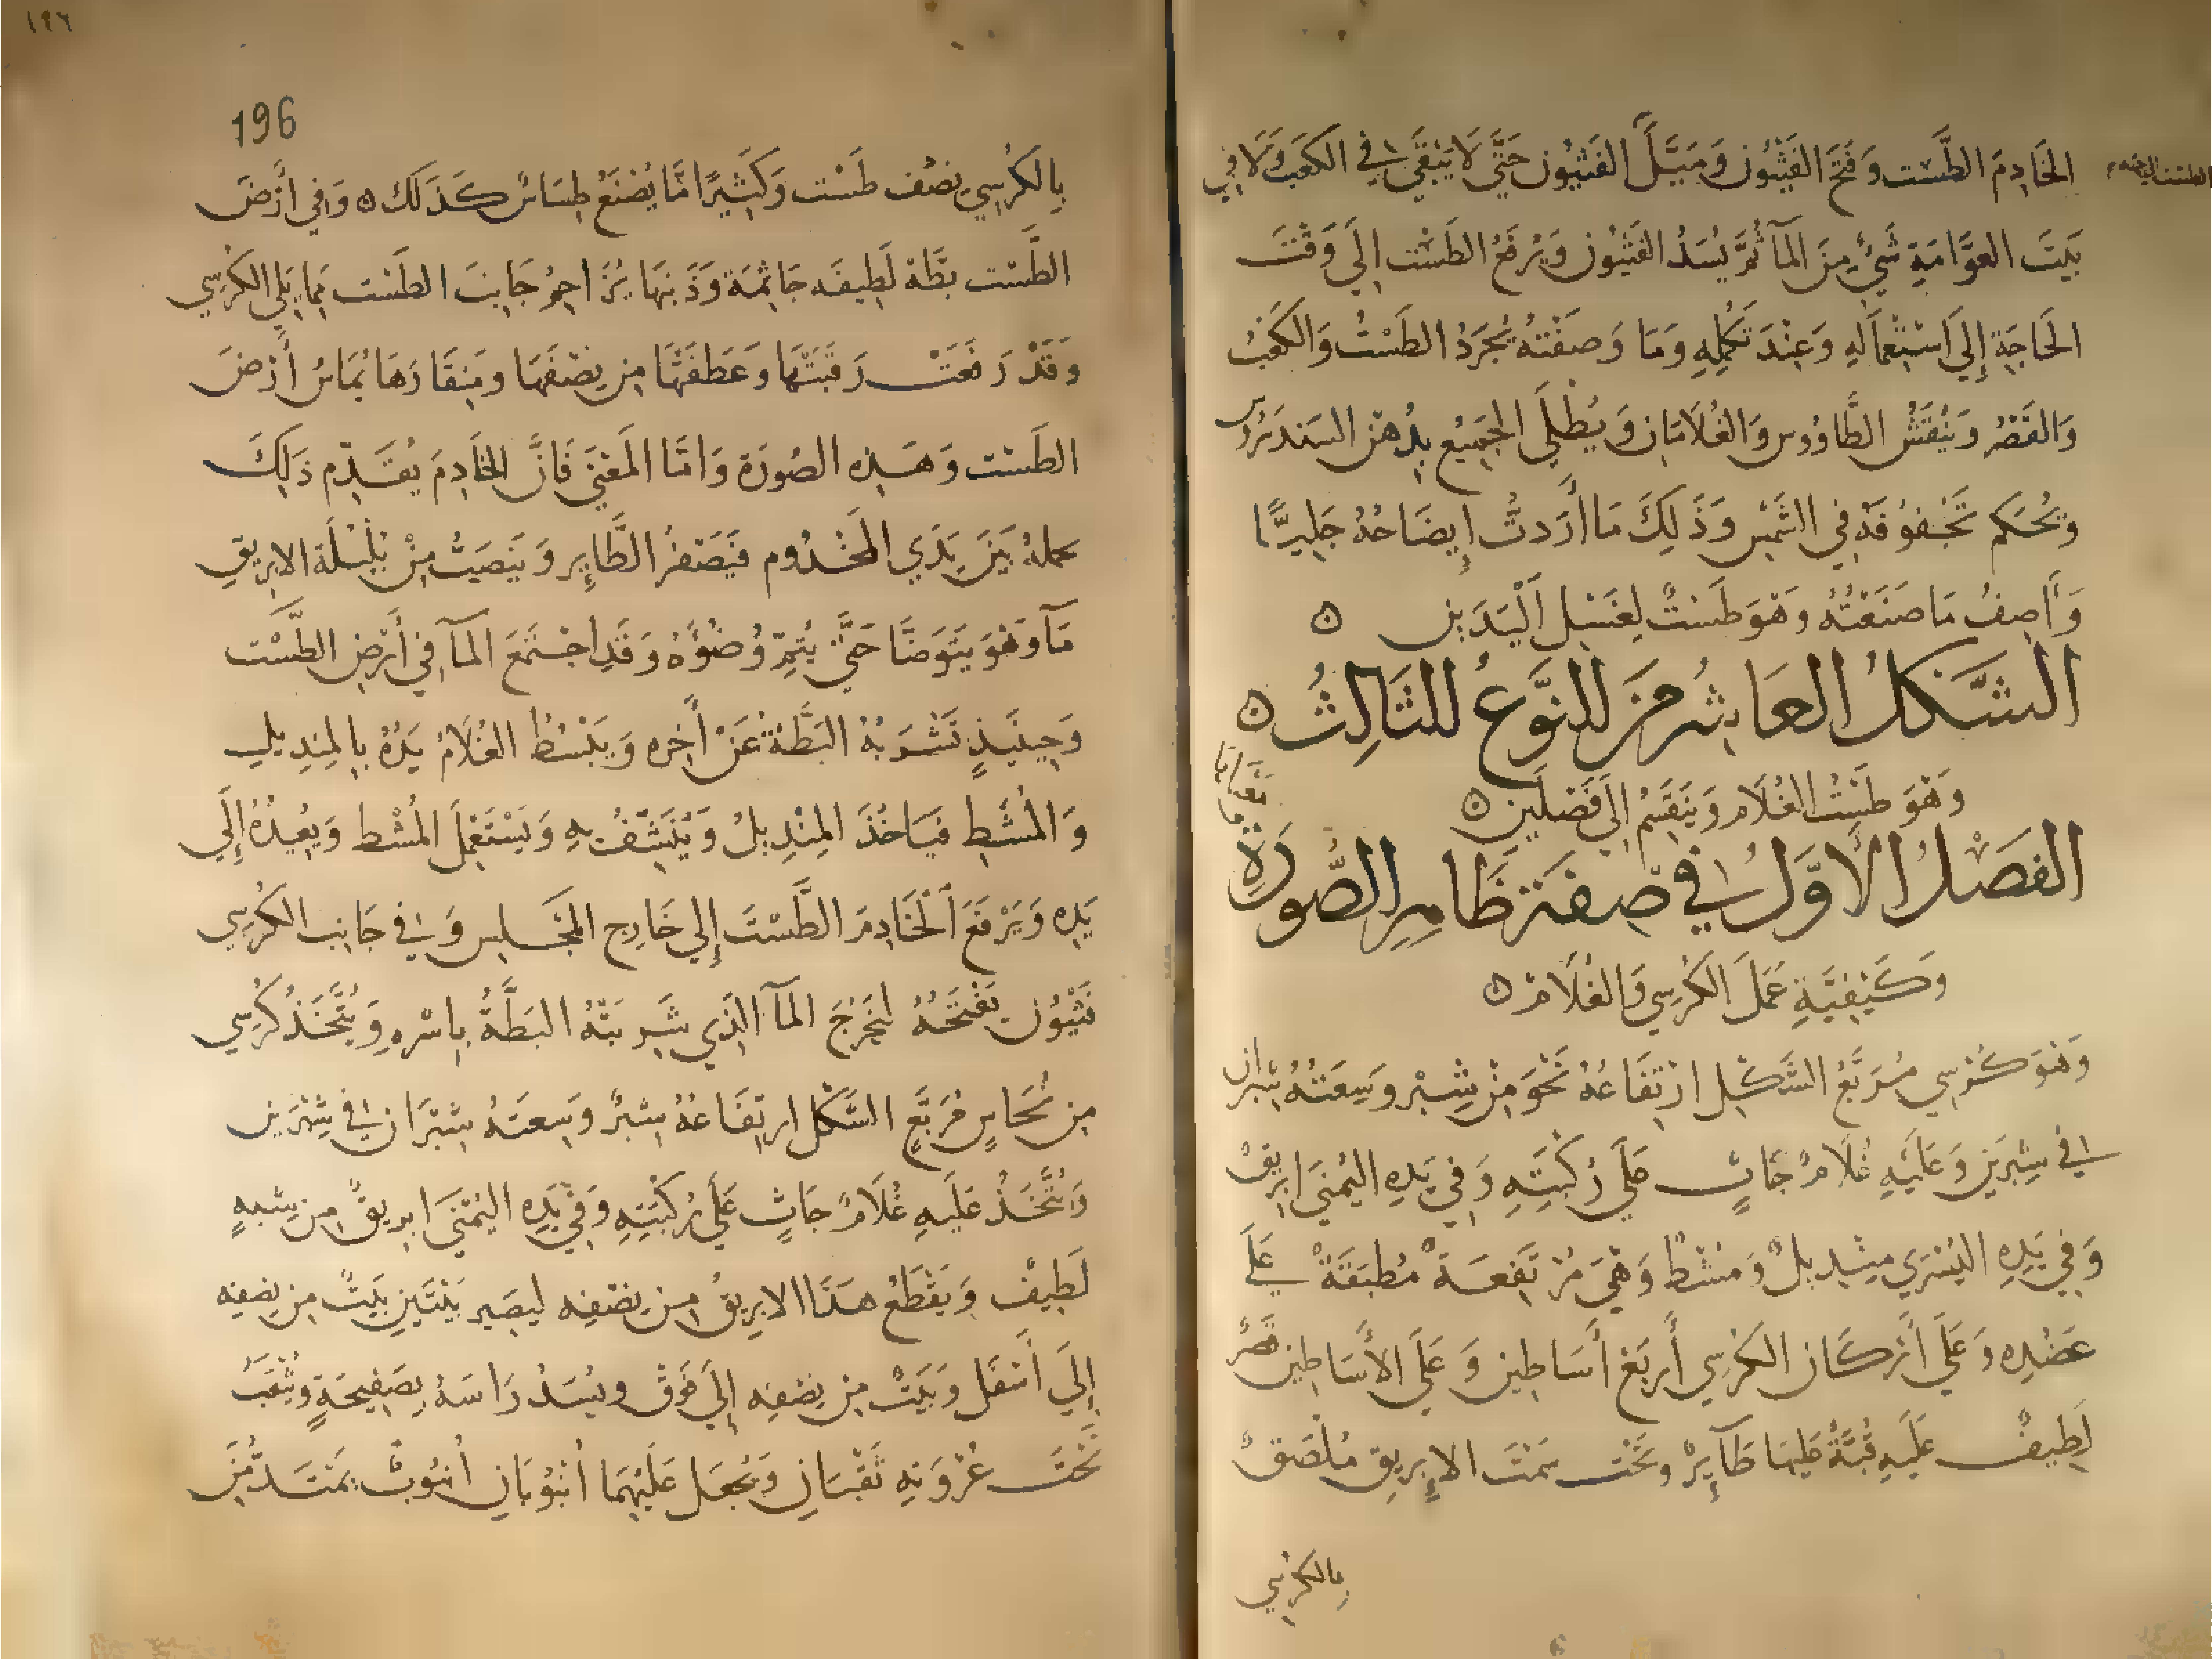 الخَادِمَ الطَّسْت وَفَتَحَ الفَثْيُون وَمَيَّلَ الفَثْيُون حَتَّى لَا يَبْقَى فِي الكَعْبِ وَلَا فِي
بَيْتَ العَوَّامَةِ شَيْءٌ مِنَ المَآ ثُمَّ يُسَدُّ الفَثْيُون وَيُرفَعُ الطَسْت إِلَي وَقْتَ
الحَاجَةِ إِلَي اسْتِعْمَالِهِ وَعِنْدَ تَكْمُلِهِ وَمَا وَصَفْتهُ يُجرَدُ الطَسْتُ وَالكَعْبُ
وَالقَصْر وَيُنْقَشُ الطَّاوُوس وَالغُلَامَانِ وَيُطْلَي الجَمِيع بِدُهن السَنْدَرُوس
وَيُحْكَم تَجْفِوُفَه فِي الشَمْسِ وَذَلِكَ مَا أَرَدتُ إِيضَاحُهُ جَلِيًّا
وَأَصِفُ مَا صَنَعْتُهُ وَهْوَ طَسْتٌ لِغَسْلِ اَلْيَدَيْنِ ۝
الشَّكلُ العَاشِر مِنَ النَّوعُ الثَالِثُ ۝
وَهْوَ طَسْتُ الغُلَام وَيَنْقَسِمُ إِلَي فَصْلَيْن ۝
الفَصْلُ الأَوَّلُ فِي صِفَة ظَاهِرِ الصُّورَةِ
وَكَيْفِيَّةِ عَمَلَ الكُرْسِي وَالغُلَام ۝
وَهْوَ كُرْسِي مُرَبَّعُ الشَّكْلِ ارْتِفَاعُهُ نَحْوَ مِنْ شِبْرٍ وَسِعَتُهُ شِبْرَان
فِي شِبْرَيْن وَعَلَيْهِ غُلَامٌ جَاثٍ عَلَي رُكْبَتِهِ وَفِي يَدِهِ اليُمْنَى ابْرِيْقٌ
وَفِي يَدِهِ اليُسْرَي مِنْدِيلٌ وَمُشْطٌ وَهْيَ مُرْتَفِعَةٌ مُطْبَقَةٌ عَلَي
عَضُدِهِ وَعَلَي أَرْكَانِ الكُرْسِي أَربَع أَسَاطِين وَعَلَى الأَسَاطِين قَصْرٌ
لَطِيفٌ عَلَيْهِ قُبَّةٌ عَلَيْهَا طَآيِرٌ وَتَحْت سَمْتَ الإِبْرِيق مُلْصَقٌ
بِالكُرْسِي
196
بِالكُرْسِي نِصْفُ طَسْت وَكَثِيْرًا مَّا يُصْنَعُ طِسَاسٌ كَذَلَكَ ۝ وَفِي أَرْضَ
الطَّسْت بَطَّة لَطِيفَه جَاثِمَة وَذَنبَهَا يُزَاحِمُ جَانِبَ الطَسْت مِمَّا يَلِي الكُرْسِي
وَقَدْ رَفَعَتْ رَقَبَتَهَا وَعَطَفَتْهَا مِن نِصْفَهَا وَمِنقَارَهَا يُمَاسُ أَرْضَ
الطَسْت وَهَذِهِ الصُورَة وَامَّا المَعْنَي فَانَّ الخَادِمَ يُقَدِّم ذَلِكَ
عمله بَيْنَ يَدَي المَخْدُوم فَيَصْفرُ الطَّايِر وَيَنْصَبُّ مِنْ بُلْبُلَة الابريق
مَآ وَهْوَ يَتَوَضَّا حَتَّى يُتِمَّ وُضُوْءَهُ وَقَدِ اجْتَمَعَ المَآ فِي أَرْضِ الطَّسْت
وَحِينَئِذٍ تَشْرَبُهُ البَطَّة عَنْ أَخِره وَيَبْسُطُ الغُلَامُ يَدَهُ بِالمِنِدِيلِ
وَالمُشْطِ فَيَاخُذَ المِنْدِيلُ وَيُنَشَّفُ بِهِ وَيَسْتَعْمِلَ المُشْط وَيُعِيدُهُ إِلَي
يَدِهِ وَيَرْفَعَ اَلْخَادِمَ الطَّسْتَ إِلي خَارِج المَجْلِسِ وَفِي جَانِب الكُرْسِي
فَثْيُون يَفْتَحُهُ لِيَخْرُجَ المَآ الذِي شَرِبَتْهُ البَطَّةُ بِاسْرِهِ وَيُتَّخَذُ كُرْسِي
مِن نُحَاسٍ مُرَبَّعِ الشَّكْلِ ارتِفَاعُهُ شِبْرٌ وَسِعَتهُ شِبْرَان فِي شِبْرَيْن
وَيُتَّخَذُ عَلَيهِ غُلَامٌ جَاثٍ عَلَي رُكْبَتِهِ وَفِي يَدِه اليُمْنَى ابرِيقٌ مِن شبهٍ
لَطِيفٌ وَيَقْطَعُ هَذَا الابرِيقُ مِن نِصْفِه ليصَير بَيْتَيْنِ بَيْتٌ مِن نِصْفِه
إِلَيَ أَسْفَل وَبَيْتٌ مِن نِصْفِه إِلَي فَوْقَ وَيُسَدُ رَاسَهُ بِصَفِيحَةٍ وَيُثْقَبُ
تَحْتَ عُرْوَتِهِ ثَقْبَانِ وَيُجعَل عَلَيْهِمَا أُنْبُوبَانِ أُنْبُوبٌ يَمْتَدُّ مِنْ